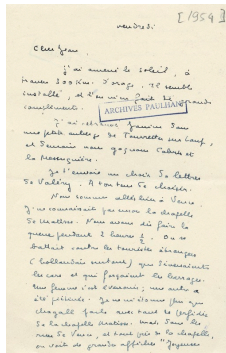 [1954]
vendredi
Cher Jean,
J'ai amené le soleil, à
travers 300 Km. d'orage. Il semble
installé, et l'on m'en fait de grands
compliments.
ARCHIVES PAULHAN
J'ai retrouvé Janine dans
une petite auberge de Tourrette sur Loup,
et demain nous gagnons Cabris et
la Messuguière.
Je t'envoie un choix de lettres
de Valéry. A ton tour de choisir.
Nous sommes allés hier à Vence.
Je ne connaissais pas encore la chapelle
de Matisse. Nous avons dû faire la
queue pendant 2 heures ½. On se
battait contre les touristes étrangers
(hollandais surtout) que
les cars et qui forçaient les barrages.
Une femme s'est évanouie; une autre a
été piétinée. Je ne m'étonne plus que
Chagall parle avec tant de perfidie
de la chapelle Matisse. mais dans les
rues de Vence, et tout près de la chapelle,
on voit de grandes affiches "Joyeuses